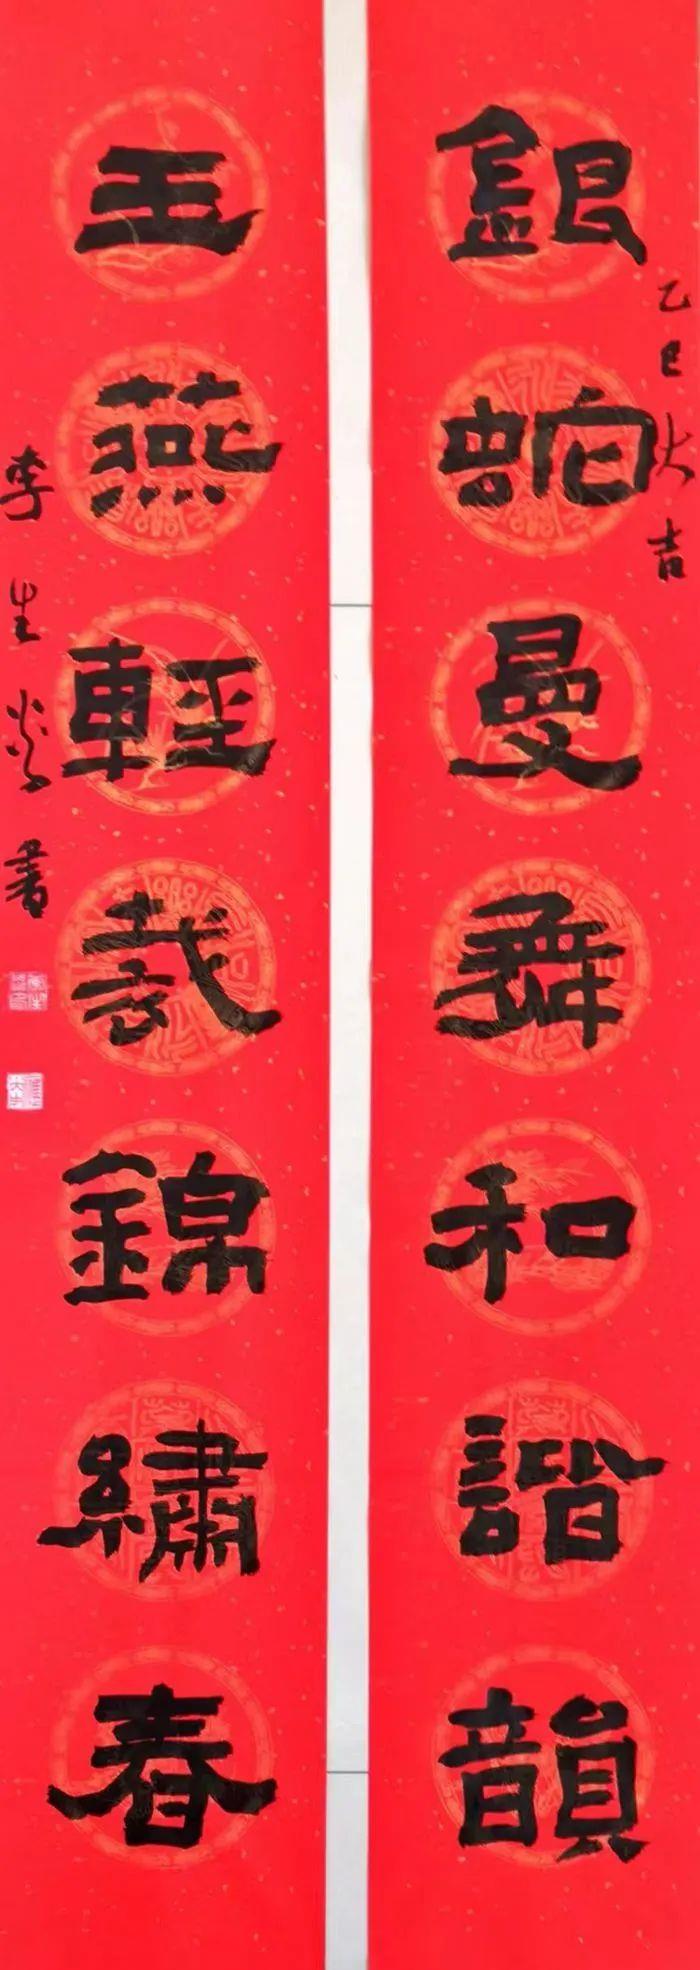 乙巳大吉
銀蛇曼舞和諧韻
玉燕輕裁錦繡春
李生 書